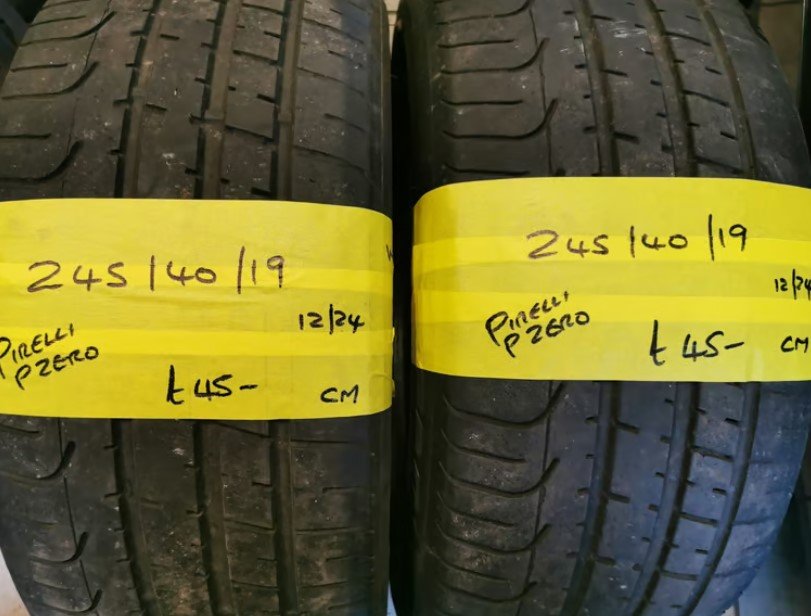 245/40/19
12/24
PIRELLI
PZERO
£45-
CM
245/40/19
12/24
PIRELLI
PZERO
£45-
CM